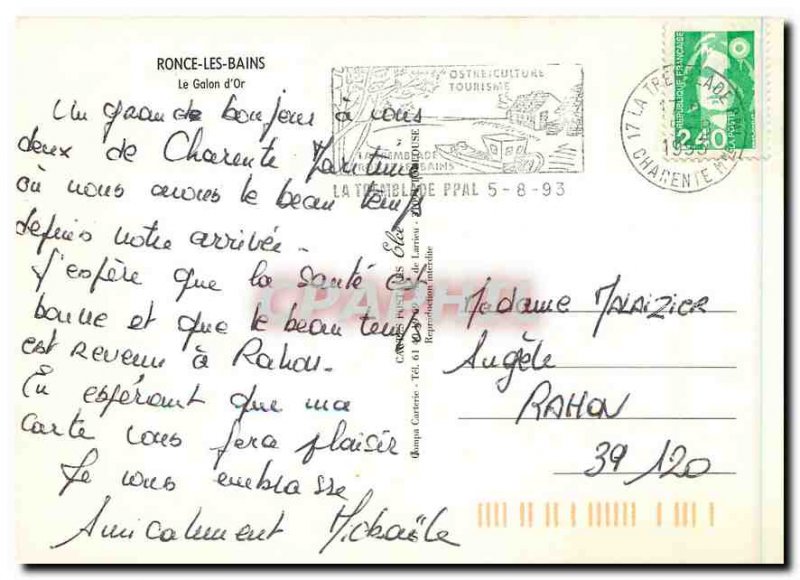 RONCE-LES-BAINS
Le Galon d'Or
Un grand bonjour à vous
deux de Charente Maritime
où nous avons le beau temps
depuis notre arrivée.
J'espère que la santé est
bonne et que le beau temps
est revenu à Rahon.
En espérant que ma
carte vous fera plaisir
Je vous embrasse
Amicalement Mickaële
OSTREICULTURE
TOURISME
LA TREMBLADE
RONCE LES BAINS
LA TREMBLADE PPAL 5-8-93
17 LA TREMBLADE PPAL
1993
CHARENTE MME
REPUBLIQUE FRANÇAISE
2,40
LA POSTE
CARTES POSTALES Elcé
Pompa Carterie - Tél. 61
de Larrieu -
TOULOUSE
Reproduction interdite
CPAPHIL
Madame MALAIZIER
Angèle
RAHON
39 120